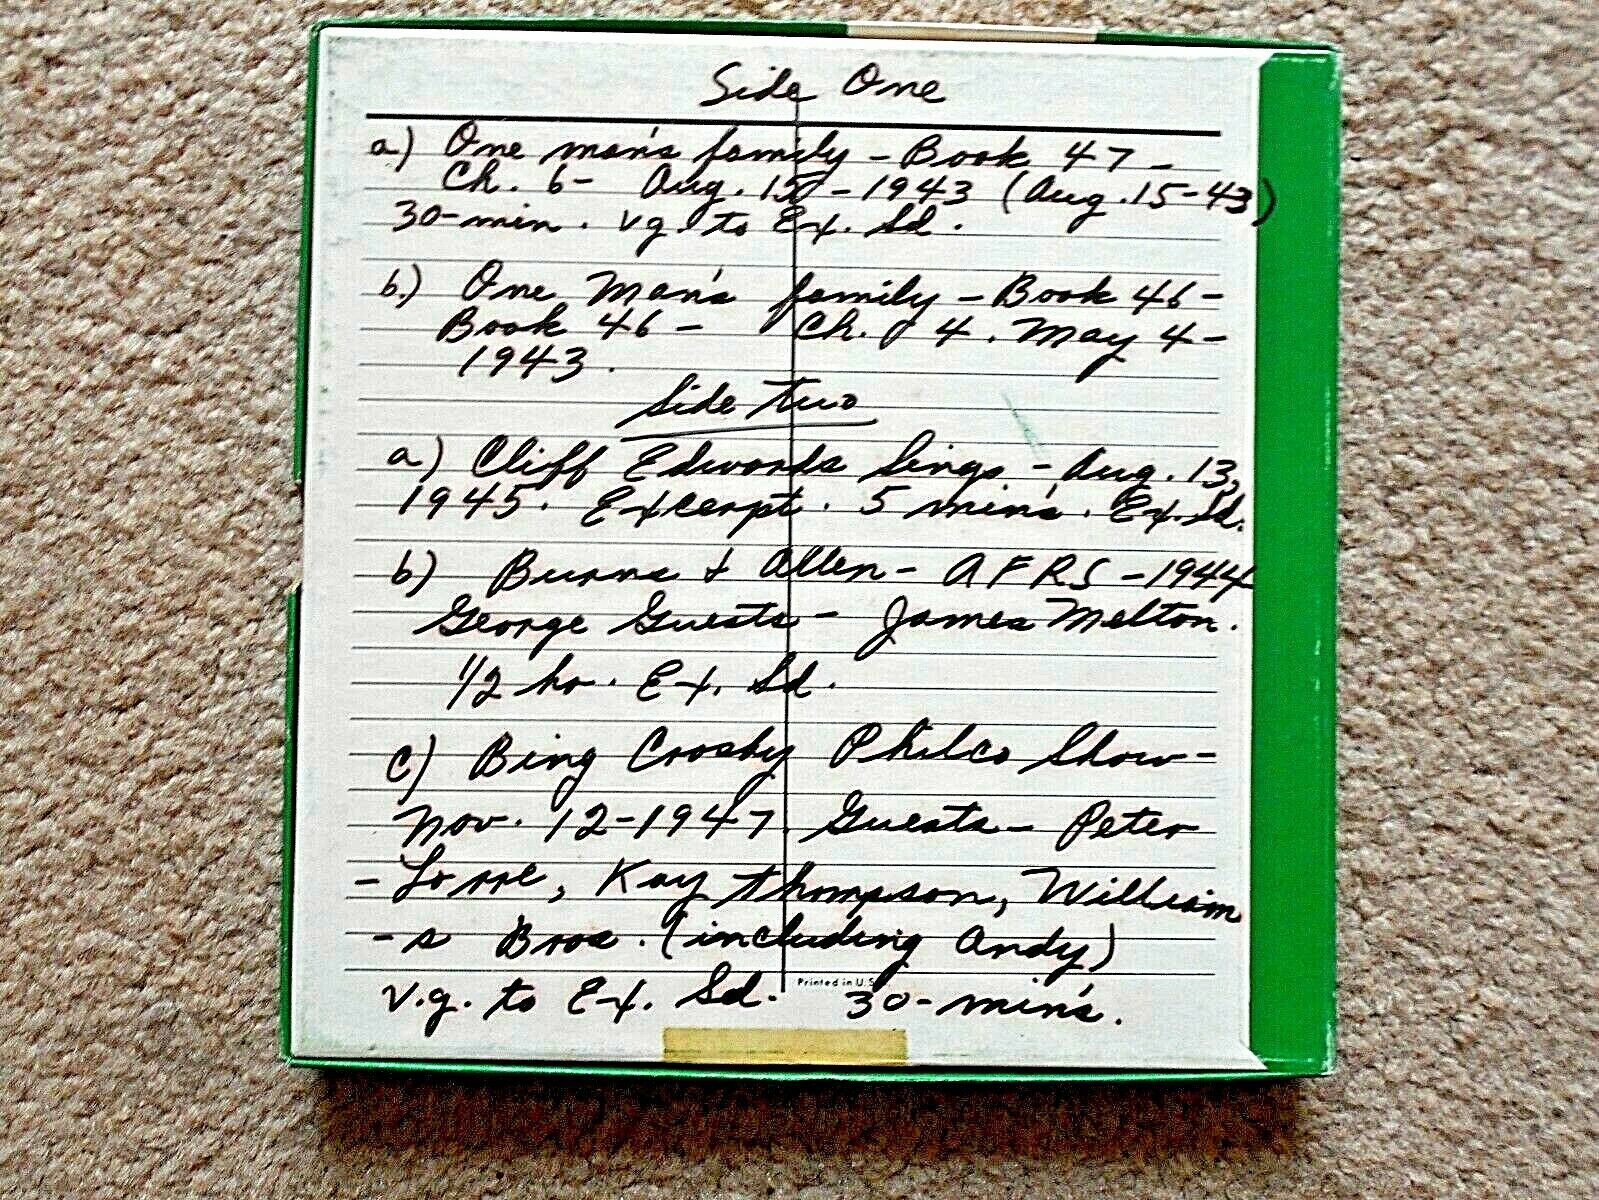 Side One
a) One man's family - Book 47 -
Ch. 6 - Aug. 15 - 1943 (Aug. 15-43)
30-min. vg. to Ex. Sd.
b.) One Man's family - Book 46 -
Book 46 - Ch. 4. May 4 -
1943.
Side Two
a) Cliff Edwards Sings - Aug. 13,
1945. Excerpt. 5 min's. Ex. Sd.
b) Burns & Allen - AFRS - 1944
George Guests - James Melton.
1/2 hr. Ex. Sd.
c) Bing Crosby Philco Show -
Nov. 12-1947. Guests - Peter
- Lorre, Kay Thompson, William
- s Bros. (including Andy)
Printed in U.S
v.g. to Ex. Sd. 30-min's.